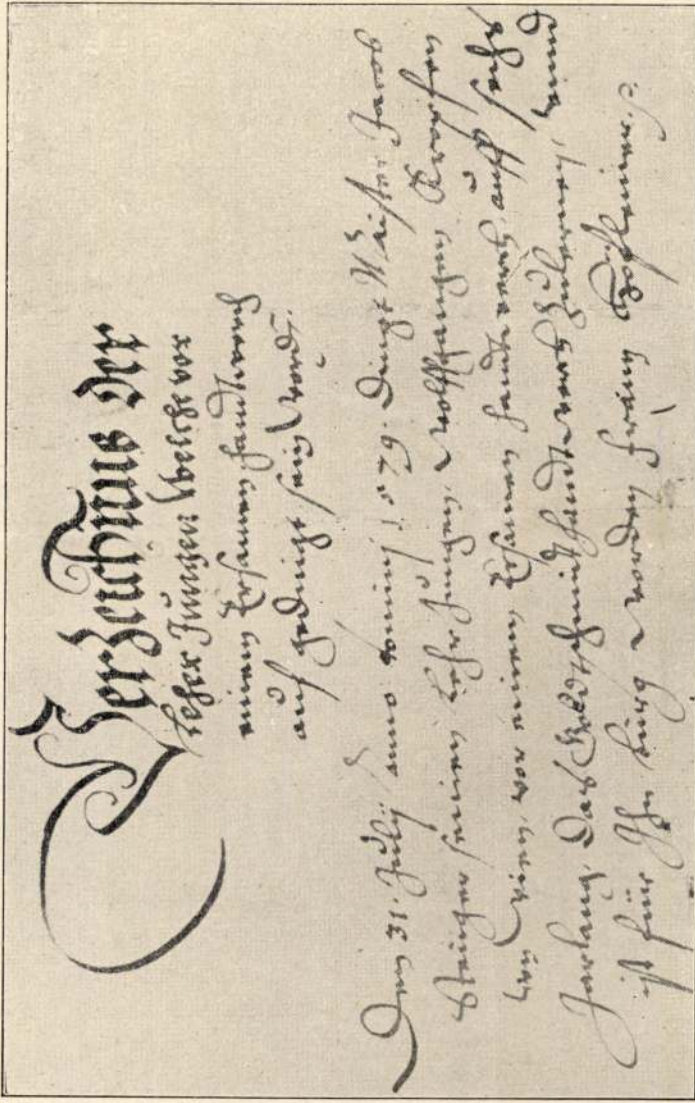 Verzeichnus der
Leher Jungen welche vor
einem Ersamen handtwerch
auf gedingt sein word.
Den 31. July anno domini 1579. dingt Meister Jacob
Stainer seinen Lehr Jungen, Wolffgangen
von Wien, vor einem Ersamen handtwerch, auff sechs
Jarlang, das Goldtschmidt handtwerch Zulernen, Und
ist für Ihn bürg worden Franz